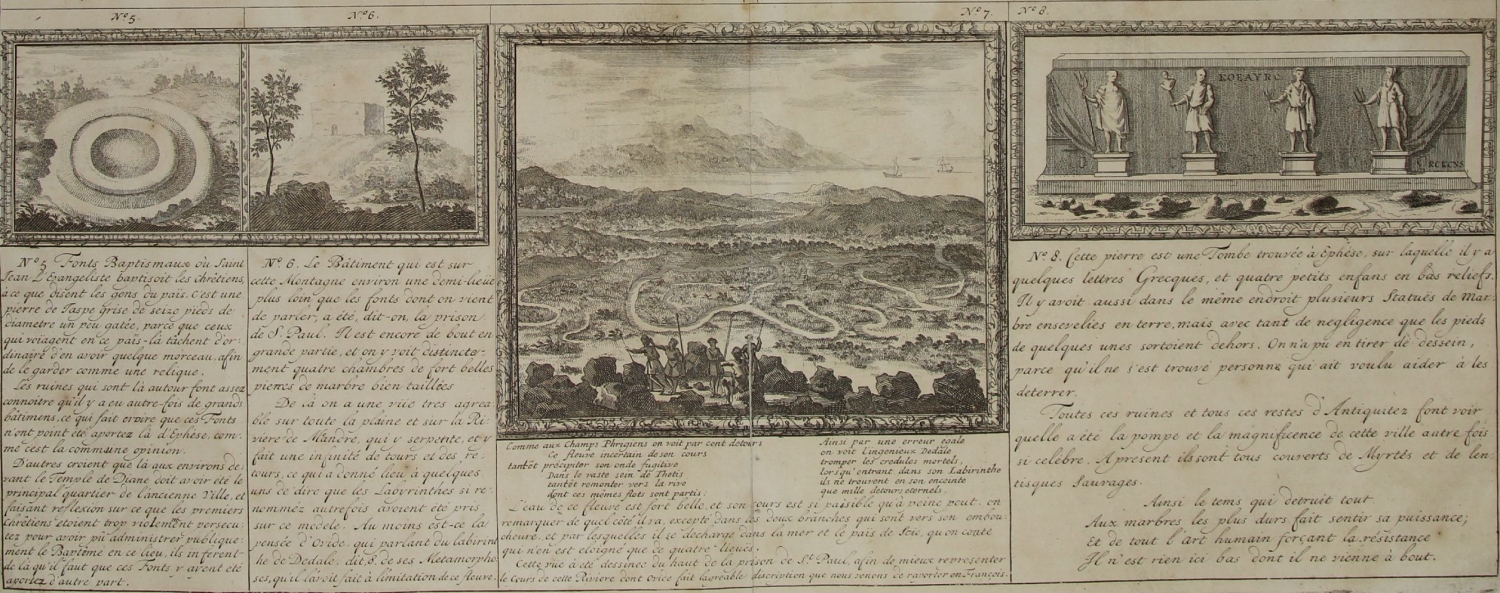 N.º 5.
N.º 6.
N.º 7
N.º 8.
ΚΟΕΑΥΡΟ
N.º 5 Fonts Baptismaux où Saint
Jean L'Evangeliste baptisoit les chrêtiens,
à ce que disent les gens du païs. C'est une
pierre de Jaspe grise de seize pieds de
diametre un peu gatée, parce que ceux
qui voiagent en ce païs-là tâchent d'or:
dinaire d'en avoir quelque morceau, afin
de le garder comme une relique.
Les ruines qui sont là autour font assez
connoitre qu'il y a eu autre-fois de grands
bâtimens, ce qui fait croire que ces Fonts
n'ont point été aportez là d'Ephese, com-
me c'est la commune opinion.
D'autres croient que là aux environs de:
vant le Temple de Diane doit avoir été le
principal quartier de l'ancienne Ville, et
faisant réflexion sur ce que les premiers
chrêtiens étoient trop violemment persecu:
tez pour avoir pû administrer publique:
ment le Baptême en ce lieu, ils inferent
de là qu'il faut que ces Fonts y aient été
aportez d'autre part.
N.º 6. Le Bâtiment qui est sur
cette Montagne environ une demi-lieüe
plus loin que les fonts dont on vient
de parler, a été, dit-on, la prison
de S.t Paul. Il est encore de bout en
grande partie, et on y voit distincte-
ment quatre chambres de fort belles
pierres de marbre bien taillées
De là on a une vüe tres agrea
ble sur toute la plaine et sur la Ri
viere de Mandre, qui y serpente, et y
fait une infinité de tours et des re:
tours, ce qui a donné lieu à quelques
uns de dire que les Labyrinthes si re-
nommez autrefois avoient été pris
sur ce modele. Au moins est-ce la
pensée d'Ovide, qui parlant du labirin
the de Dedale, dit, 8. de ses Metamorpho
ses, qu'il l'avoit fait à l'imitation de ce fleuve.
Comme aux Champs Phrigiens on voit par cent detours
Ce fleuve incertain de son cours
tantôt précipiter son onde fugitive
Dans le vaste sein de Thetis
tantôt remonter vers la rive
dont ces mêmes flots sont partis:
Ainsi par une erreur egale
on voit l'ingenieux Dedale
tromper les credules mortels,
Lorsqu'entrant dans son Labirinthe
ils ne trouvent en son enceinte
que mille detours eternels.
L'eau de ce fleuve est fort belle, et son cours est si paisible qu'à peine peut-on
remarquer de quel côté il va, excepté dans les deux branches qui sont vers son embou-
choure, et par lesquelles il se décharge dans la mer et le païs de Scio, qu'on conte
qui n'en est eloigné que de quatre-lieues.
Cette vüe a été dessinée du haut de la prison de S.t Paul, afin de mieux representer
le Cours de cette Riviere dont Ovide fait l'agréable discription que nous venons de raporter en François.
N.º 8. Cette pierre est une Tombe trouvée à Ephèse, sur laquelle il y a
quelques lettres Grecques, et quatre petits enfans en bas reliefs.
Il y avoit aussi dans le même endroit plusieurs Statues de mar-
bre ensevelies en terre, mais avec tant de negligence que les pieds
de quelques unes sortoient dehors. On n'a pû en tirer de dessein,
parce qu'il ne s'est trouvé personne qui ait voulu aider à les
deterrer.
Toutes ces ruines et tous ces restes d'Antiquitez font voir
quelle a été la pompe et la magnificence de cette ville autre fois
si celebre. A present ils sont tous couverts de Myrtes et de len
tisques Sauvages.
Ainsi le tems qui detruit tout
Aux marbres les plus durs fait sentir sa puissance;
Et de tout l'art humain forçant la résistance
Il n'est rien ici bas dont il ne vienne à bout.